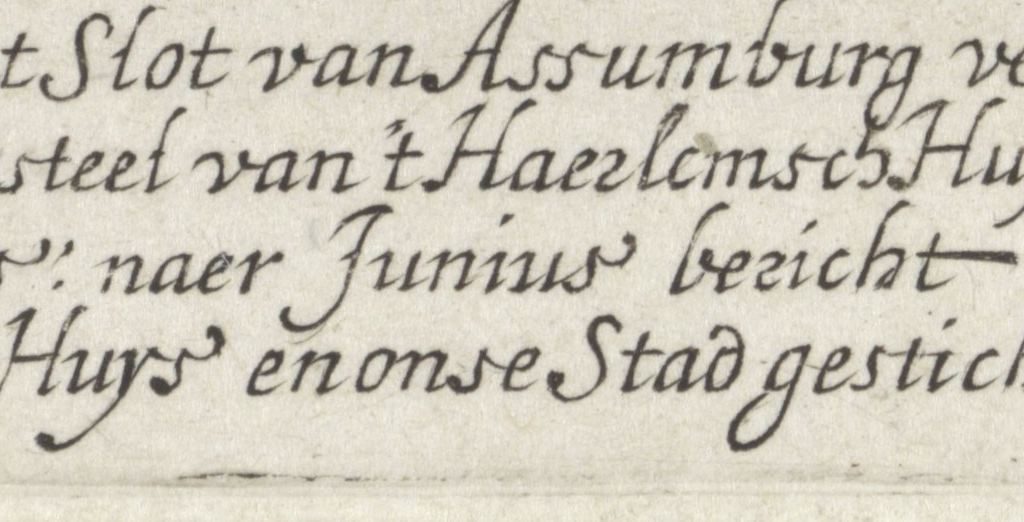 t Slot van Assumburg ve
steel van 't Haerlemsch Huy
s: naer Junius bericht
Huys en onse Stad gestich